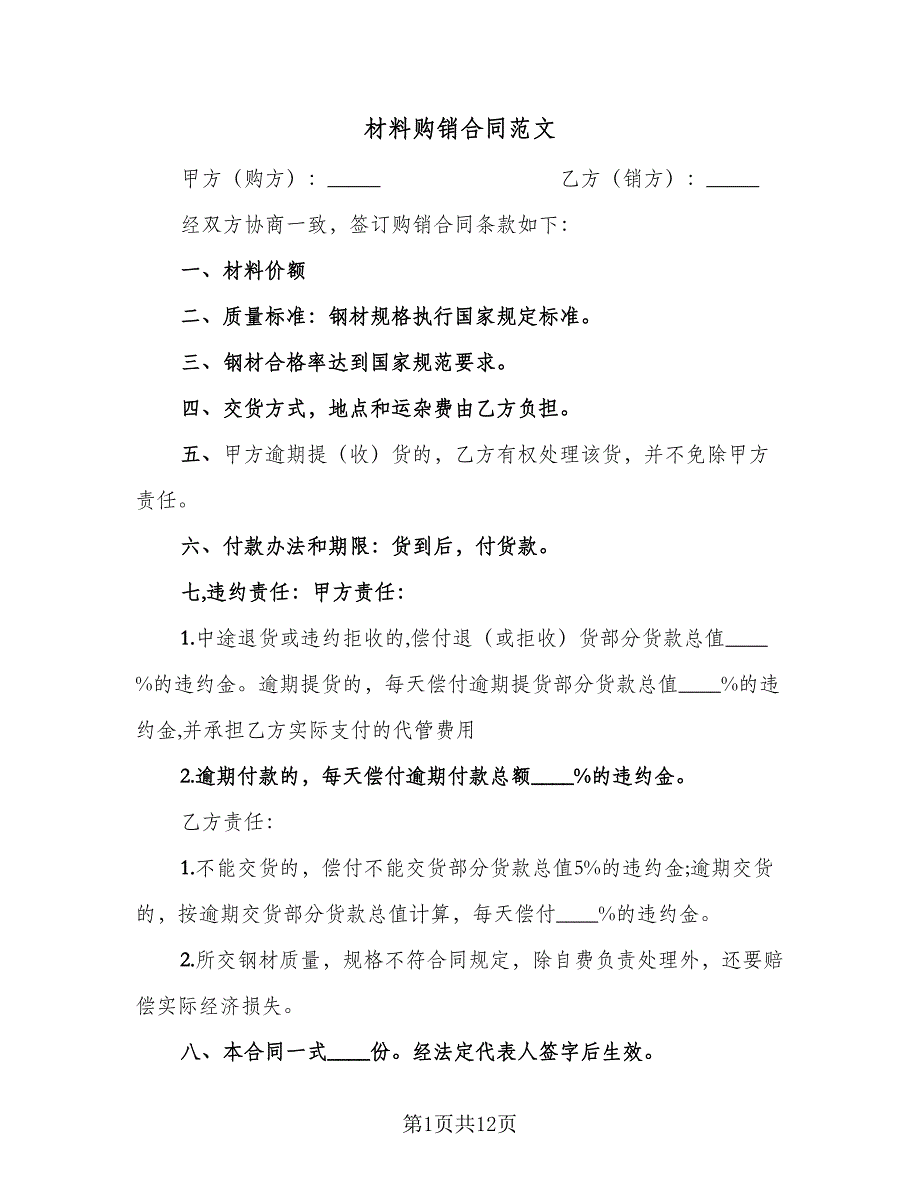 材料购销合同范文
甲方（购方）：_____ 乙方（销方）：_____
经双方协商一致，签订购销合同条款如下：
一、材料价额
二、质量标准：钢材规格执行国家规定标准。
三、钢材合格率达到国家规范要求。
四、交货方式，地点和运杂费由乙方负担。
五、甲方逾期提（收）货的，乙方有权处理该货，并不免除甲方
责任。
六、付款办法和期限：货到后，付货款。
七,违约责任：甲方责任：
1.中途退货或违约拒收的,偿付退（或拒收）货部分货款总值____
%的违约金。逾期提货的，每天偿付逾期提货部分货款总值____%的违
约金,并承担乙方实际支付的代管费用
2.逾期付款的，每天偿付逾期付款总额____%的违约金。
乙方责任：
1.不能交货的，偿付不能交货部分货款总值5%的违约金;逾期交货
的，按逾期交货部分货款总值计算，每天偿付____%的违约金。
2.所交钢材质量，规格不符合同规定，除自费负责处理外，还要赔
偿实际经济损失。
八、本合同一式____份。经法定代表人签字后生效。
第1页共12页